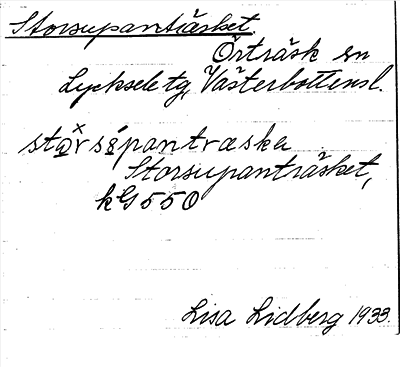 Storsupanträsket.
Örträsk sn
Lycksele tg, Västerbottensl.
Storsupanträsket,
kG 550
Lisa Lidberg 1933.